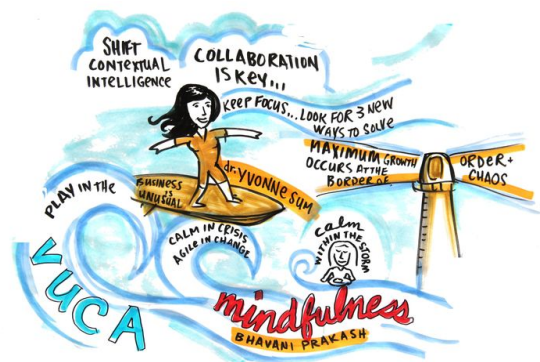 SHIFT
CONTEXTUAL
INTELLIGENCE
COLLABORATION
IS KEY...
KEEP FOCUS... LOOK FOR 3 NEW
WAYS TO SOLVE
MAXIMUM GROWTH
OCCURS AT THE
BORDER OF
ORDER +
CHAOS
dr. YVONNE SUM
BUSINESS
IS
UNUSUAL
PLAY IN THE
VUCA
CALM IN CRISIS
AGILE IN CHANGE
calm
WITHIN THE STORM
mindfulness
BHAVANI PRAKASH